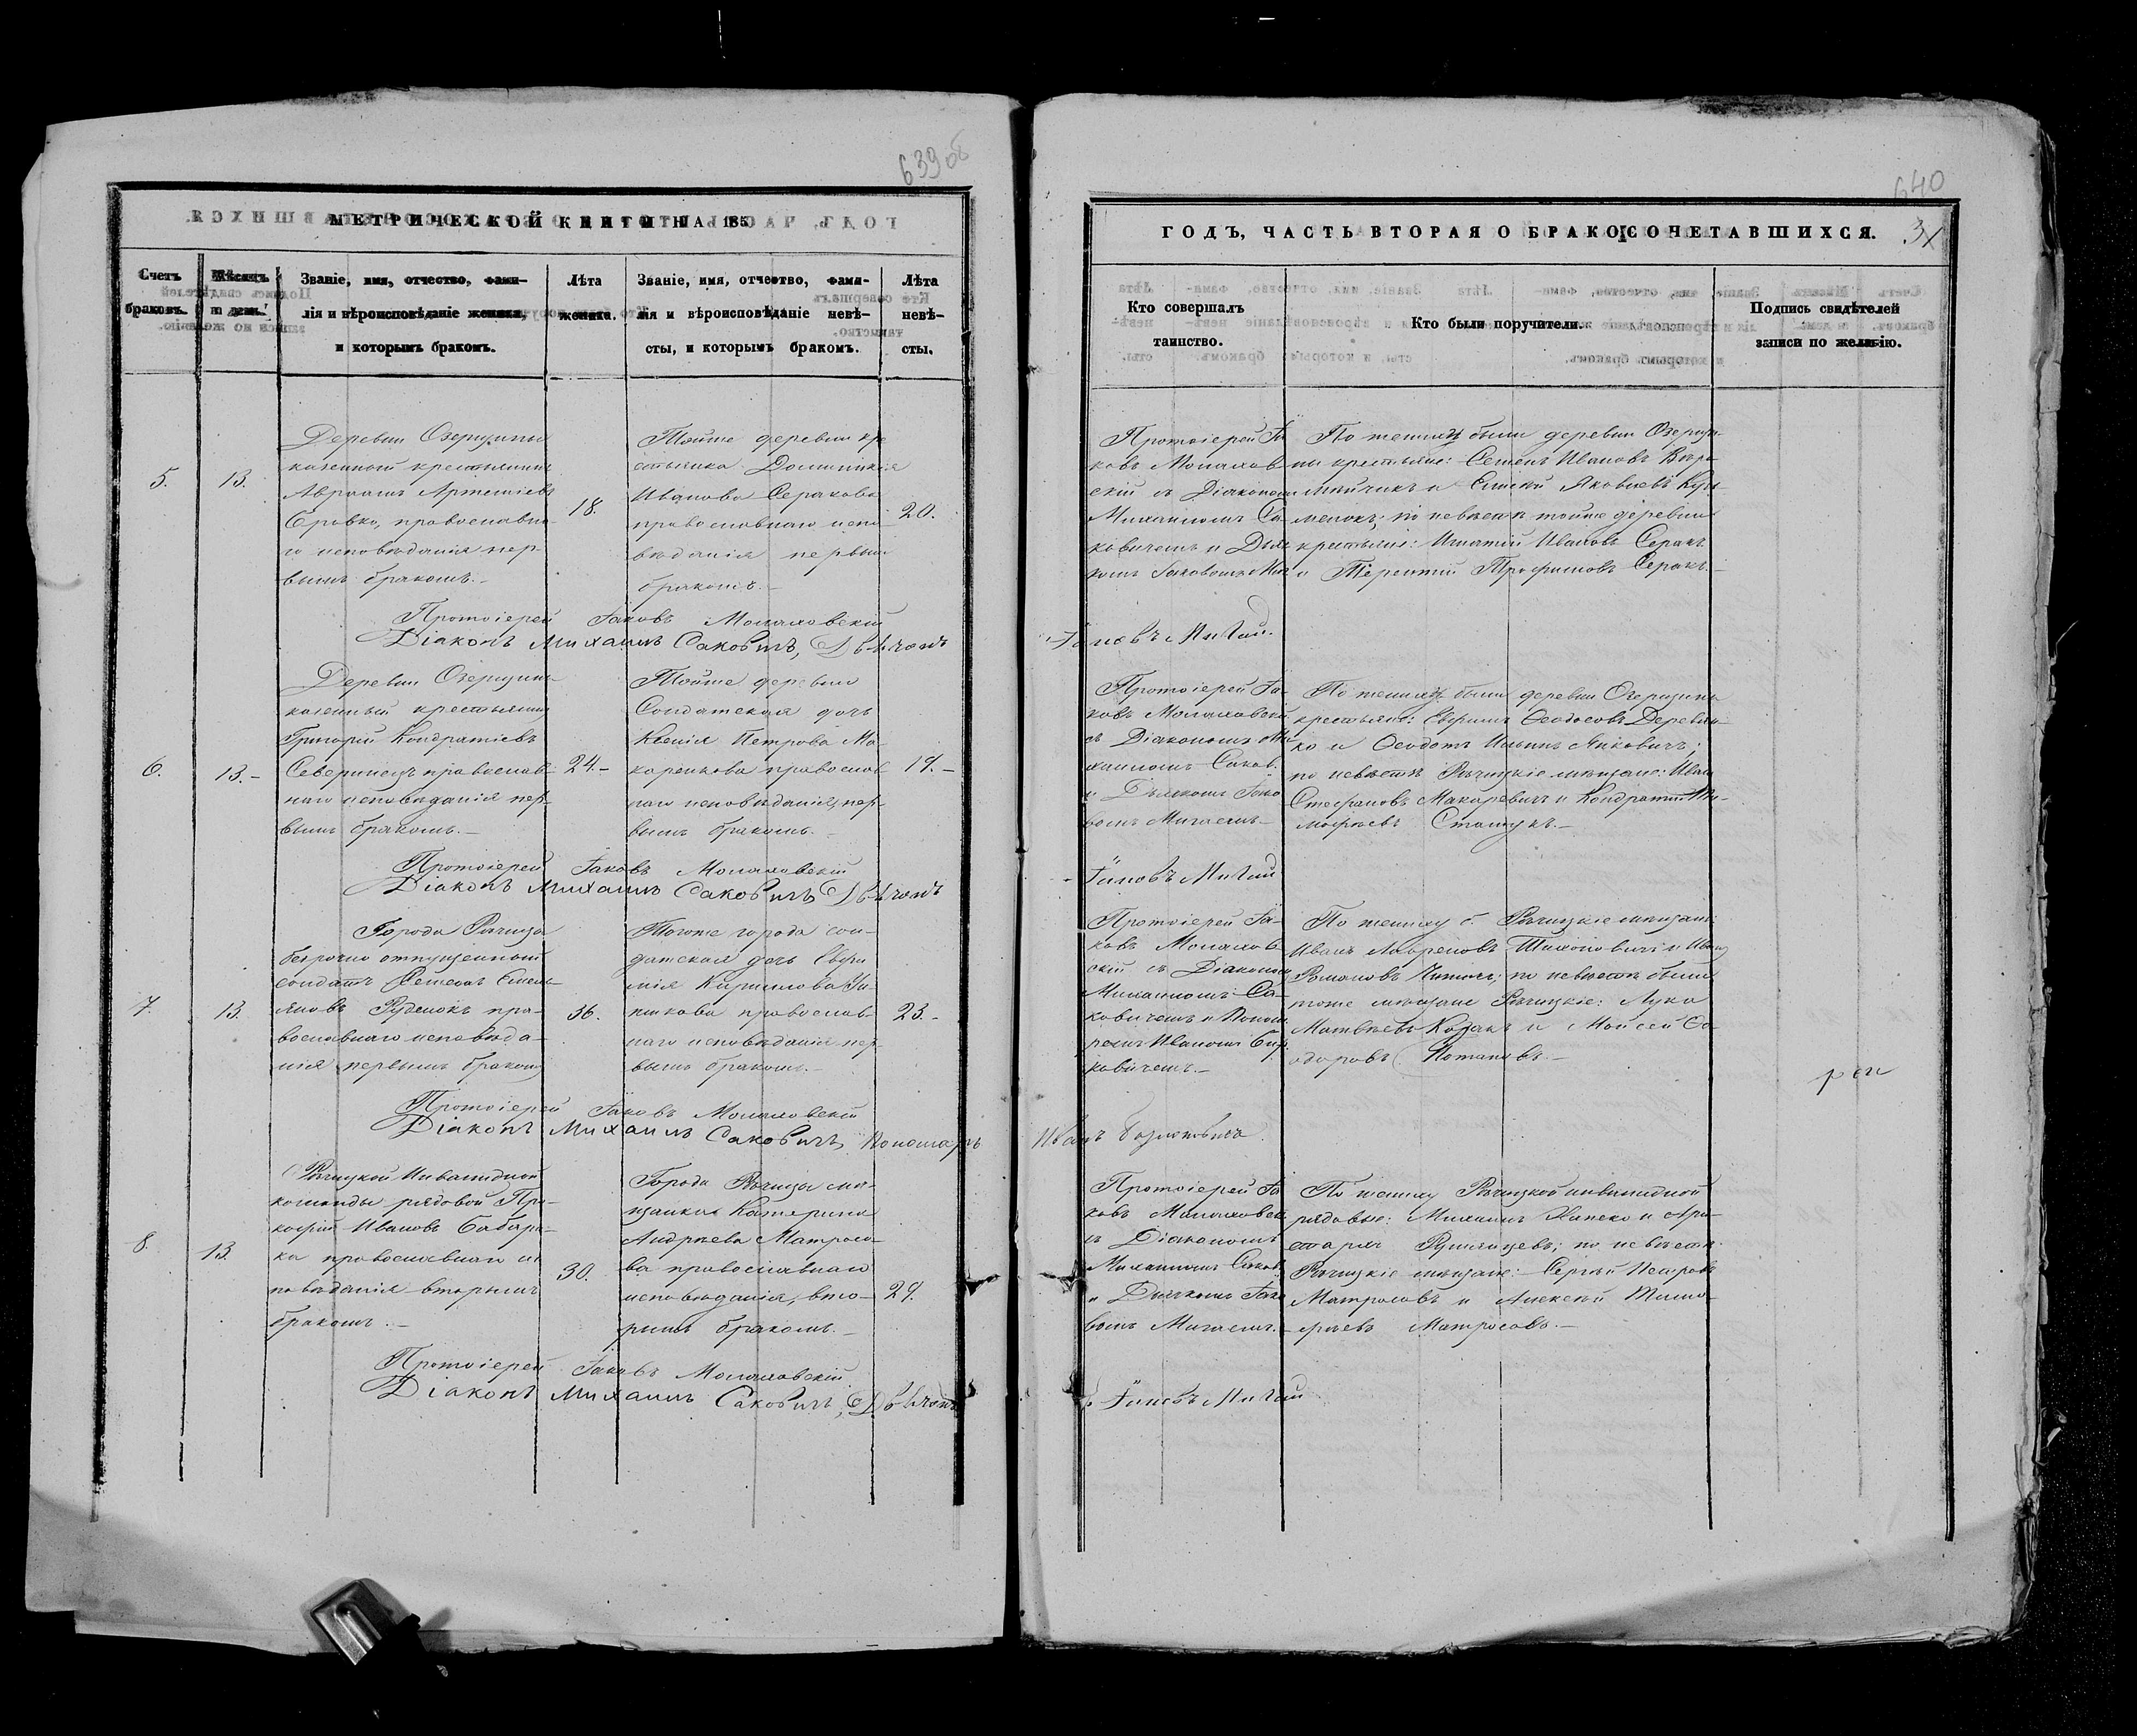 639 об
МЕТРИЧЕСКОЙ КНИГИ НА 185
Счетъ браковъ.
Мѣсяцъ и день.
Званіе, имя, отчество, фами-
лія и вѣроисповѣданіе жениха,
и которымъ бракомъ.
Лѣта
жениха.
Званіе, имя, отчество, фами-
лія и вѣроисповѣданіе невѣ-
сты, и которымъ бракомъ.
Лѣта
невѣ-
сты.
5.
13.
Деревни Озерщины
казенный крестьянинъ
Авраамъ Артеміевъ
православна-
го исповѣданія пер-
вымъ бракомъ.-
18.
Тойже деревни кре
стьянка Домникія
Иванова Céракова
православнаго испо
вѣданія первым
бракомъ.-
20.
Протоіерей Іаковъ Малаховскій
Діаконъ Михаилъ Саковичъ, Дьячокъ
6.
13.-
Деревни Озерщины
казенный крестьянинъ
Григорій Кондратіевъ
Северинецъ православ-
наго исповѣданія пер-
вымъ бракомъ.-
24.-
Тойже деревни
Солдатская дочь
Ксенія Петрова Ма-
каренкова православ-
наго исповѣданія, пер-
вымъ бракомъ.-
19.-
Протоіерей Іаковъ Малаховскій
Діаконъ Михаилъ Саковичъ Дьячокъ
7.
13.
Города Рѣчицы
безрочно отпущенный
солдатъ Семенъ Емель-
яновъ пра-
вославнаго исповѣда-
нія первымъ бракомъ
36.
Тогоже города сол-
датская дочь Евфи
мія Кирилова
православ-
наго исповѣданія пер-
вымъ бракомъ.-
23.-
Протоіерей Іаковъ Малаховскій
Діаконъ Михаилъ Саковичъ, Пономарь
8.
13.
Рѣчицкой Инвалидной
команды рядовой Про-
кофій Ивановъ Бабари-
ка православнаго ис
повѣданія вторымъ
бракомъ.-
30.
Города Рѣчицы мѣ-
щанка Катерина
Андреева Матросо-
ва православнаго
исповѣданія, вто-
рымъ бракомъ.-
29.
Протоіерей Іаковъ Малаховскій
Діаконъ Михаилъ Саковичъ, Дьячокъ
640
ГОДЪ, ЧАСТЬ ВТОРАЯ О БРАКОСОЧЕТАВШИХСЯ.
Кто совершалъ
таинство.
Кто были поручители.
Подпись свидѣтелей
записи по желанію.
Протоіерей Іа
ковъ Малахов
скій съ Діакономъ
Михаиломъ Са
ковичемъ и Дьяч
комъ Іаковомъ
По женихѣ были деревни Озерщи-
ны крестьяне: Семенъ Ивановъ
и Яковлевъ
по невѣстѣ тойже деревни
крестьяне: Игнатій Ивановъ Серакъ
и Терентій Трофимовъ Серакъ.-
Іаковъ Мигай.
Протоіерей Іа-
ковъ Малаховскій
съ Діакономъ Ми
хаиломъ Саков.
и Дьячкомъ Іако
вомъ Мигаемъ.-
По женихѣ были деревни Озерщины
крестьяне: Евфимъ Ѳеодосовъ Деревян-
ко и Ѳеодотъ Ильинъ Янковичъ;
по невѣстѣ Рѣчицкіе мѣщане: Иванъ
Стефановъ Макаревичъ и Кондратій Ти-
мофѣевъ Сташукъ.-
Іаковъ Мигай
Протоіерей Іа-
ковъ Малахов
скій съ Діакономъ
Михаиломъ Са-
ковичемъ и Поном.
ремъ Иваномъ
ковичемъ.-
По жениху б. Рѣчицкіе мѣщане
Иванъ Лавреновъ и Иванъ
Романовъ по невѣстѣ были
тоже мѣщане Рѣчицкіе: Лука
Матвѣевъ Козакъ и Мойсей Ѳе
одоровъ Потаповъ.-
Иванъ
Протоіерей Іа
ковъ Малаховскій
съ Діакономъ
Михаиломъ Саков.
и Дьячкомъ Іако
вомъ Мигаемъ.-
По жениху Рѣчицкой инвалидной
рядовые: Михаилъ и Ари-
стархъ Румянцевъ; по невѣстѣ
Рѣчицкіе мѣщане: Сергѣй Петровъ
Матросовъ и Алексѣй Тимо-
фѣевъ Матросовъ.-
Іаковъ Мигай